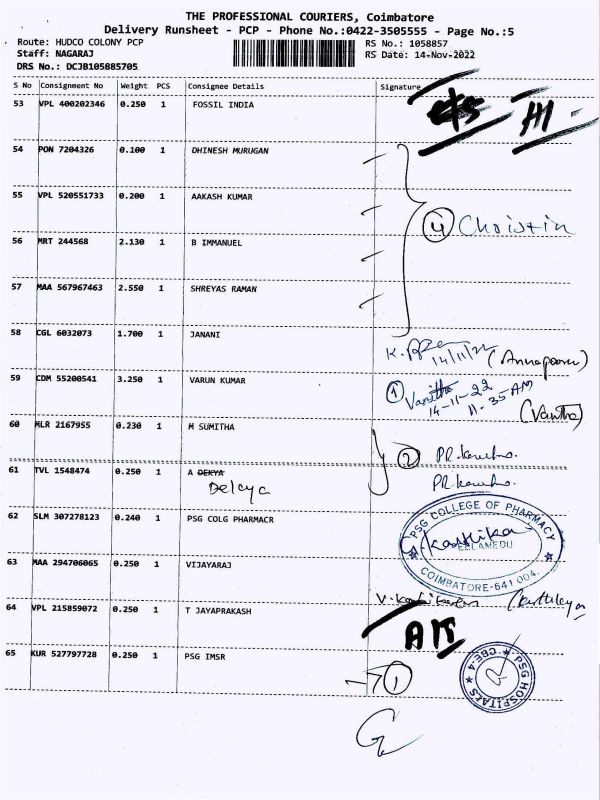 THE PROFESSIONAL COURIERS, Coimbatore
Delivery Runsheet - PCP - Phone No.:0422-3505555 - Page No.:5
Route: HUDCO COLONY PCP RS No.: 1058857
Staff: NAGARAJ RS Date: 14-Nov-2022
DRS No.: DCJB105885705
S No Consignment No Weight PCS Consignee Details Signature
53 VPL 400202346 0.250 1 FOSSIL INDIA
54 PON 7204326 0.100 1 DHINESH MURUGAN
55 VPL 520551733 0.200 1 AAKASH KUMAR
4 Christin
56 MRT 244568 2.130 1 B IMMANUEL
57 MAA 567967463 2.550 1 SHREYAS RAMAN
58 CGL 6032073 1.700 1 JANANI
14/11/22
59 CDM 55200541 3.250 1 VARUN KUMAR
1 Vanitha
14-11-22
11.35AM
(Vanitha)
60 MLR 2167955 0.230 1 M SUMITHA
2
61 TVL 1548474 0.250 1 A DEKYA
Delcya
62 SLM 307278123 0.240 1 PSG COLG PHARMACR
PSG COLLEGE OF PHARMACY
Karthika
PEELAMEDU
COIMBATORE-641 004.
63 MAA 294706065 0.250 1 VIJAYARAJ
64 VPL 215859072 0.250 1 T JAYAPRAKASH
65 KUR 527797728 0.250 1 PSG IMSR
1
PSG HOSPITALS
CBE-4